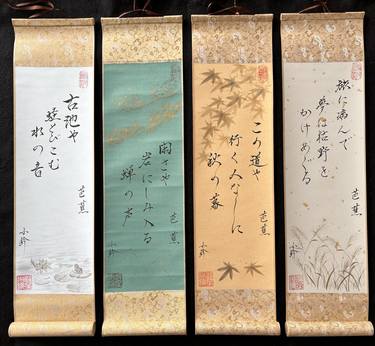 古池や
蛙とびこむ
水の音
芭蕉
閑さや
岩にしみ入る
蝉の声
芭蕉
この道や
行く人なしに
秋の暮
芭蕉
旅に病んで
夢は枯野を
かけめぐる
芭蕉